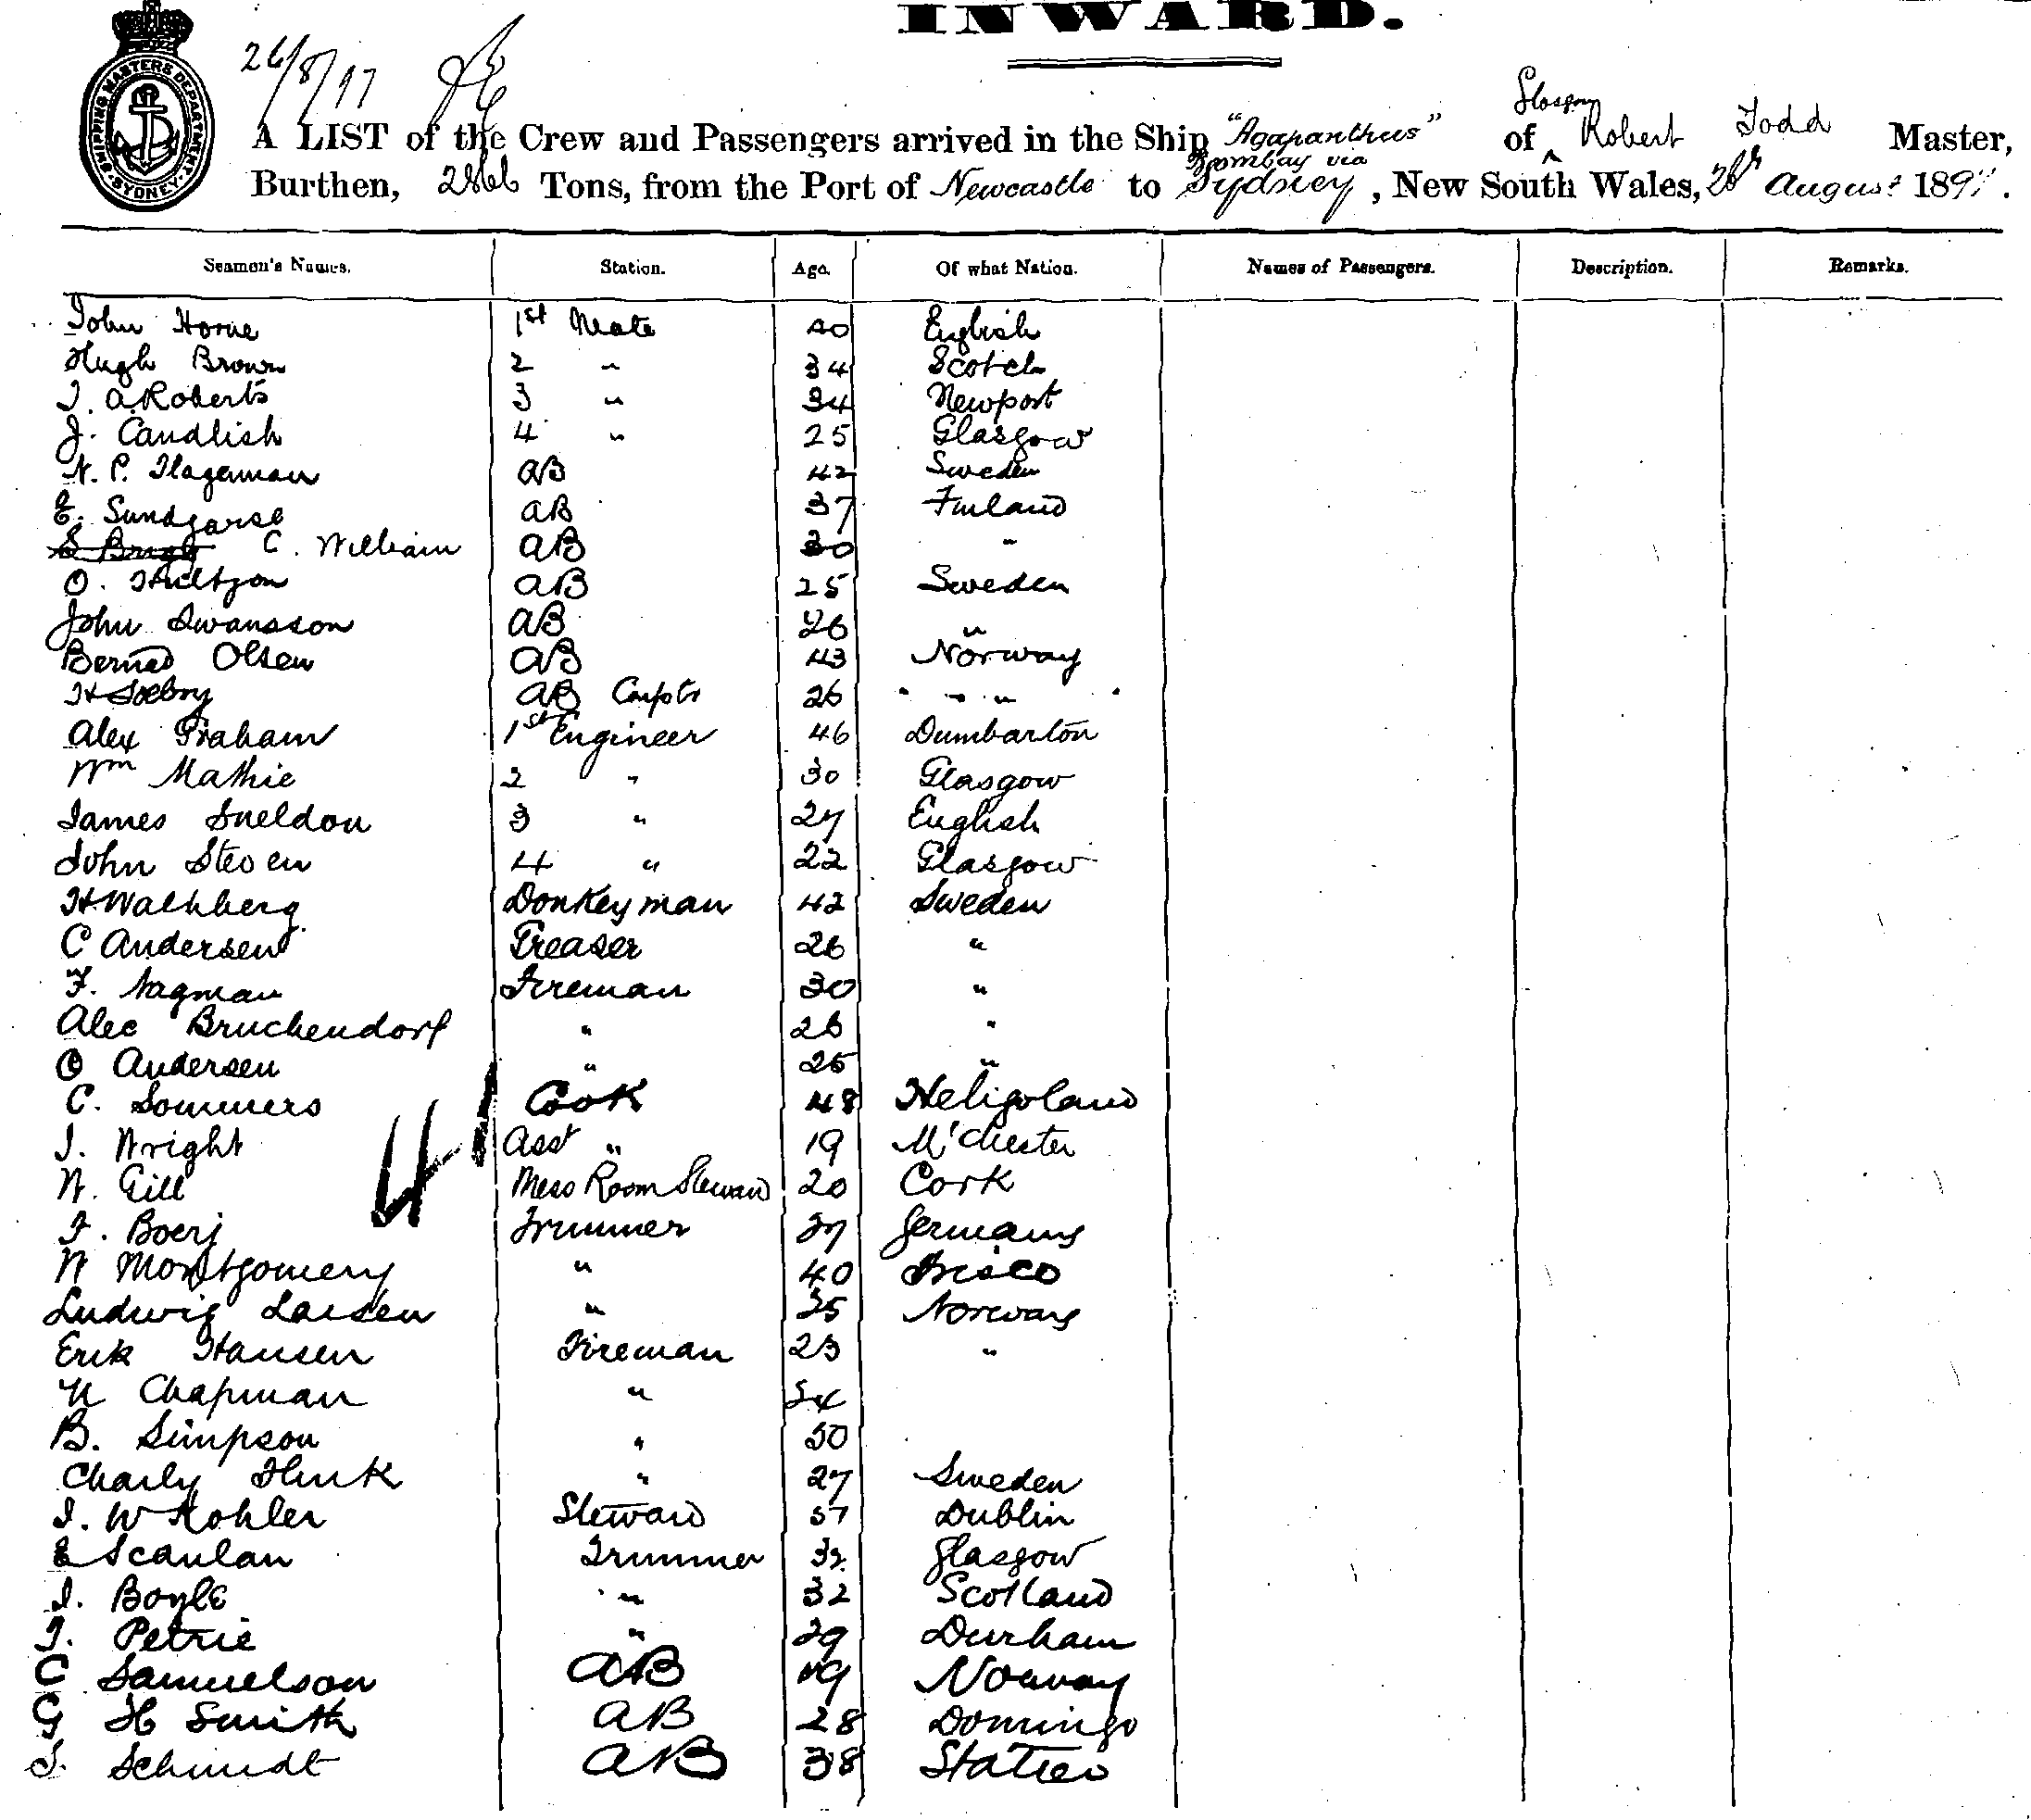 INWARD.
26/8/97
SHIPPING MASTERS DEPARTMENT SYDNEY
Glasgow
A LIST of the Crew and Passengers arrived in the Ship "Agapanthus" of Robert Todd Master,
Bombay via
Burthen, 2866 Tons, from the Port of Newcastle to Sydney, New South Wales, 26th August 1897.
Seamen's Names. Station. Age. Of what Nation. Names of Passengers. Description. Remarks.
John Horne 1st Mate 40 English
Hugh Brown 2 " 34 Scotch
J. A. Roberts 3 " 34 Newport
J. Candlish 4 " 25 Glasgow
N. P. Hagerman AB 42 Sweden
E. AB 37 Finland
C. William AB 30 "
O. AB 25 Sweden
John Swansson AB 26 "
Bernad Olsen AB 43 Norway
H AB Carptr 26 "
Alex Graham 1st Engineer 46 Dumbarton
Wm Mathie 2 " 30 Glasgow
James Sneldon 3 " 27 English
John Steven 4 " 22 Glasgow
H Walhberg. Donkeyman 42 Sweden
C Andersen Greaser 26 "
F. Nagman Fireman 30 "
Alec Bruchendorf " 26 "
O Andersen " 25 "
C. Sommers Cook 48 Heligoland
J. Wright Asst " 19 M'chester
W. Gill Mess Room Steward 20 Cork
F. Boerj Trimmer 27 Germany
W Montgomery " 40 Frisco
Ludwig Larsen " 25 Norway
Erik Hansen Fireman 23 "
Chapman "
B. Simpson " 50
Charly Flink " 27 Sweden
J. W Kohler Steward 37 Dublin
E Scanlan Trimmer 32 Glasgow
J. Boyle " 32 Scotland
J. Petrie " 29 Durham
C Samuelson AB 19 Norway
G H Smith AB 28 Domingo
J. Schmidt AB 38 States